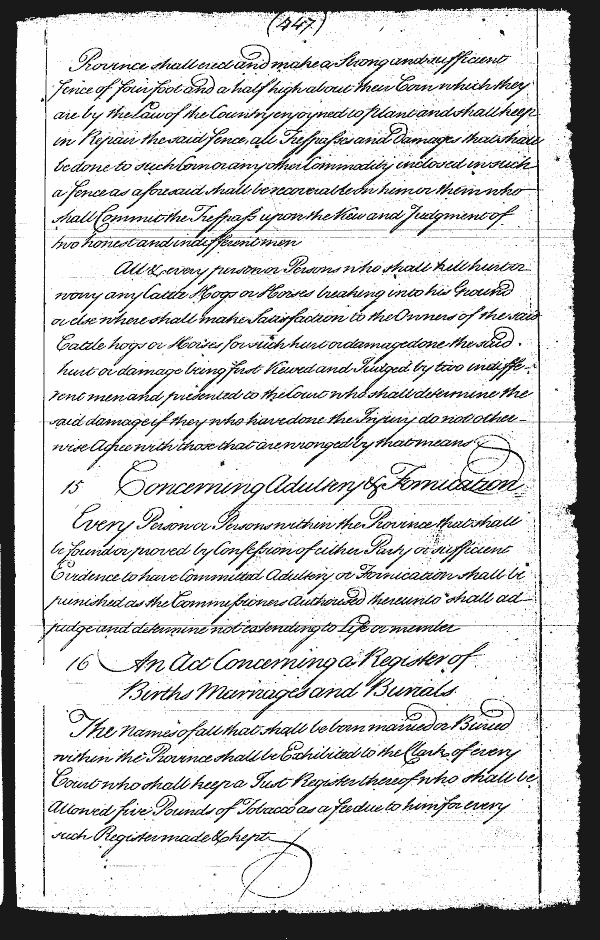 (447)
Province shall ered and make a Strong and sufficient
fence of four foot and a half high about their Corn which they
are by the Law of the Country enjoyned to plant and shall keep
in Repair the said fence, all Tresspasses and Damages that shall
be done to such Corn or any other Commodity inclosed in such
a fence as aforesaid shall be recoverable on him or them who
shall Commit the Tresspass upon the View and Judgment of
two honest and indifferent men
All & every person or Persons who shall kill hurt or
worry any Cattle Hogs or Horses breaking into his Ground
or else where shall make Satisfaction to the Owners of the said
Cattle hogs or Horses for such hurt or damage done the said
hurt or damage being first Viewed and Judged by two indiffe-
rent men and presented to the Court who shall determine the
said damage if they who have done the Injury do not other-
wise Agree with those that are wronged by that means
15 Concerning Adultery & Fornication
Every Person or Persons within the Province that shall
be found or proved by Confession of either Party or sufficient
Evidence to have Commited Adultery or Fornication shall be
punished as the Commissioners Authorised thereunto shall ad
judge and determine not extending to Life or member
16 An Act Concerning a Register of
Births Marriages and Burials
The Names of all that shall be born married or Buried
within the Province shall be Exhibited to the Clerk of every
Court who shall keep a Just Register thereof who shall be
Allowed five Pounds of Tobacco as a fee due to him for every
such Register made & kept